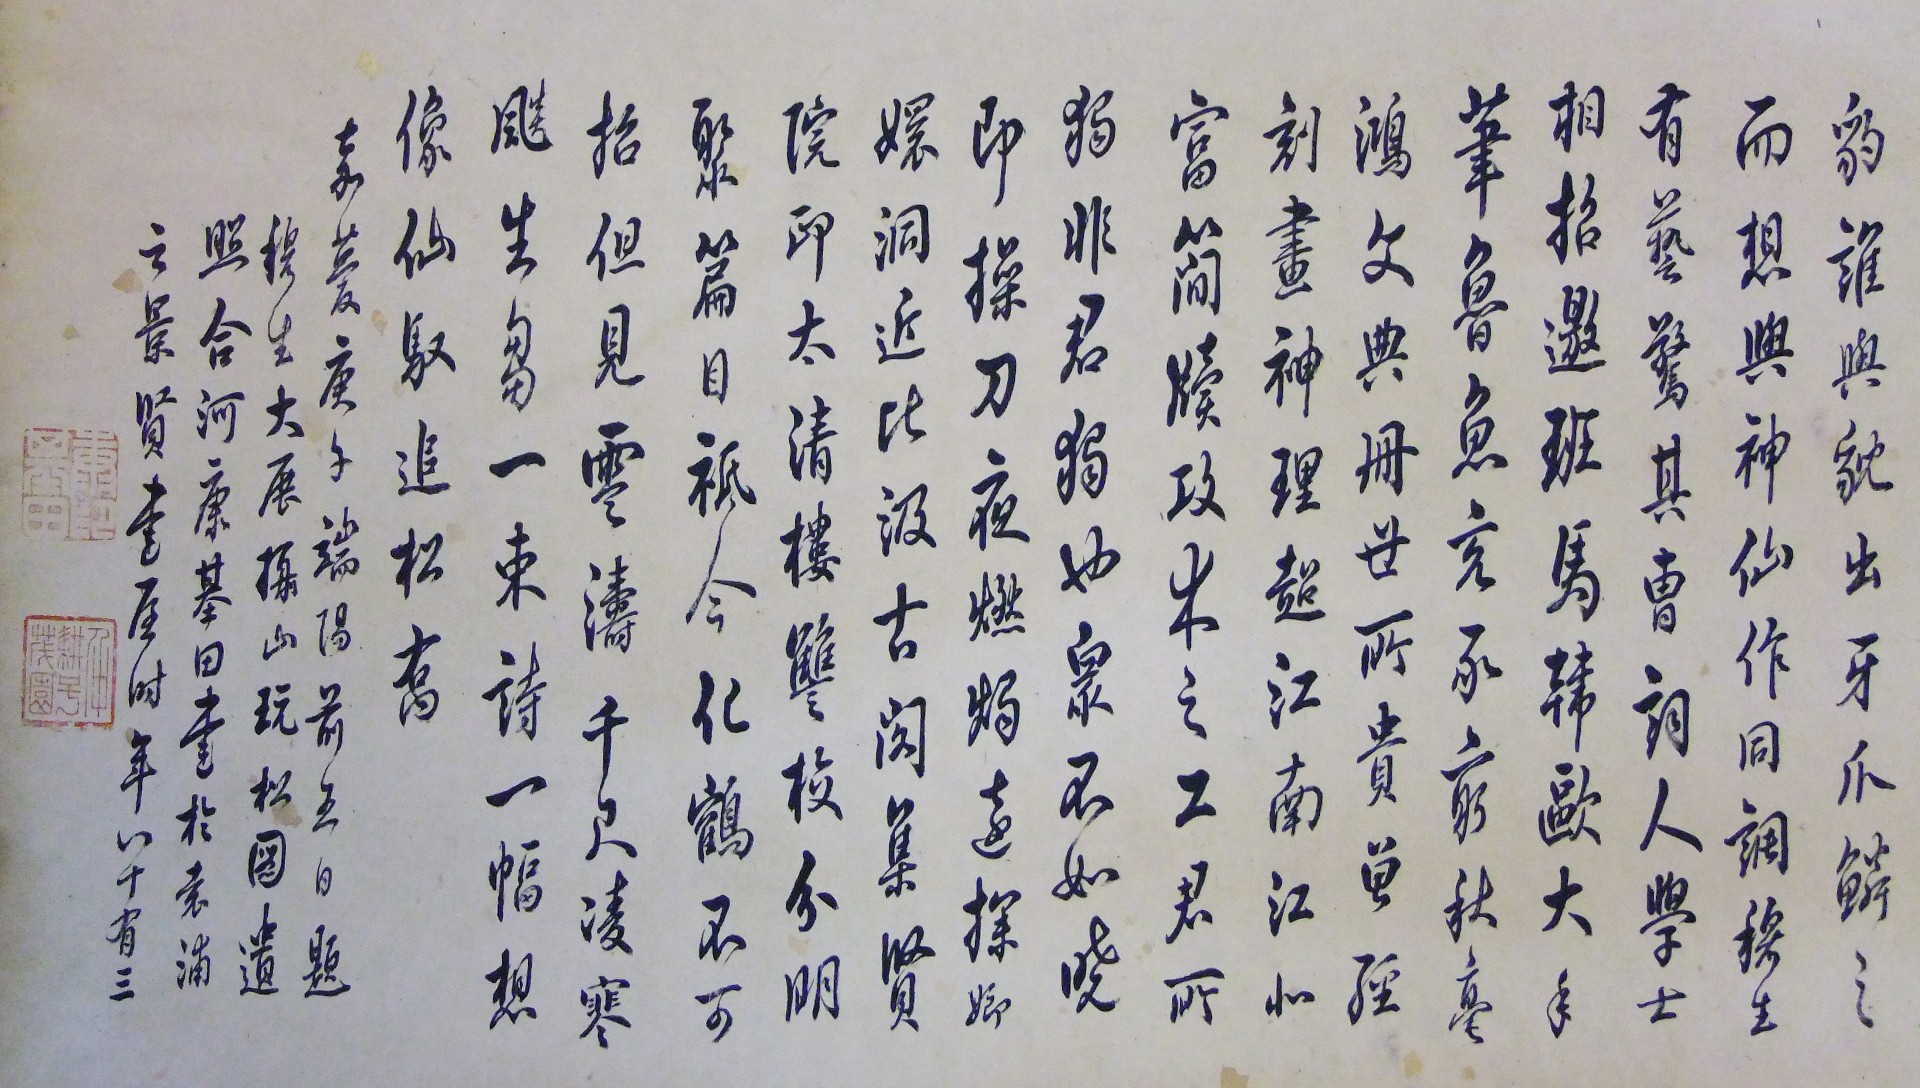 豹誰與貌出牙爪鱗之
而想與神仙作同調穆生
有藝驚其曹詞人學士
相招邀班馬韓歐大手
筆魯魚亥豕窮秋毫
鴻文典冊世所貴曾經
刻畫神理超江南江北
富簡牘攻木之工君所
獨非君獨也衆不如曉
即操刀夜燃燭遠探嫏
嬛洞近比汲古閣集賢
院即太清樓讐校分明
聚篇目祗今化鶴不可
招但見雲濤千尺凌寒
颷生芻一束詩一幅想
像仙馭追松喬
嘉慶庚午端陽前五日題
穆生大展攝山玩松圖遺
照合河康基田書於袁浦
之景賢書屋時年八十有三